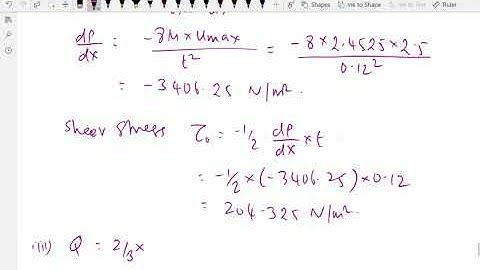 Shapes Ink to Shape Ink to Text Ruler
dp/dx = -8μ×Umax/t² = -8×2.4525×2.5/0.12²
= -3406.25 N/m².
Shear stress τ₀ = -1/2 dp/dx × t
= -1/2 × (-3406.25) × 0.12
= 204.325 N/m².
iii) Q = 2/3 ×